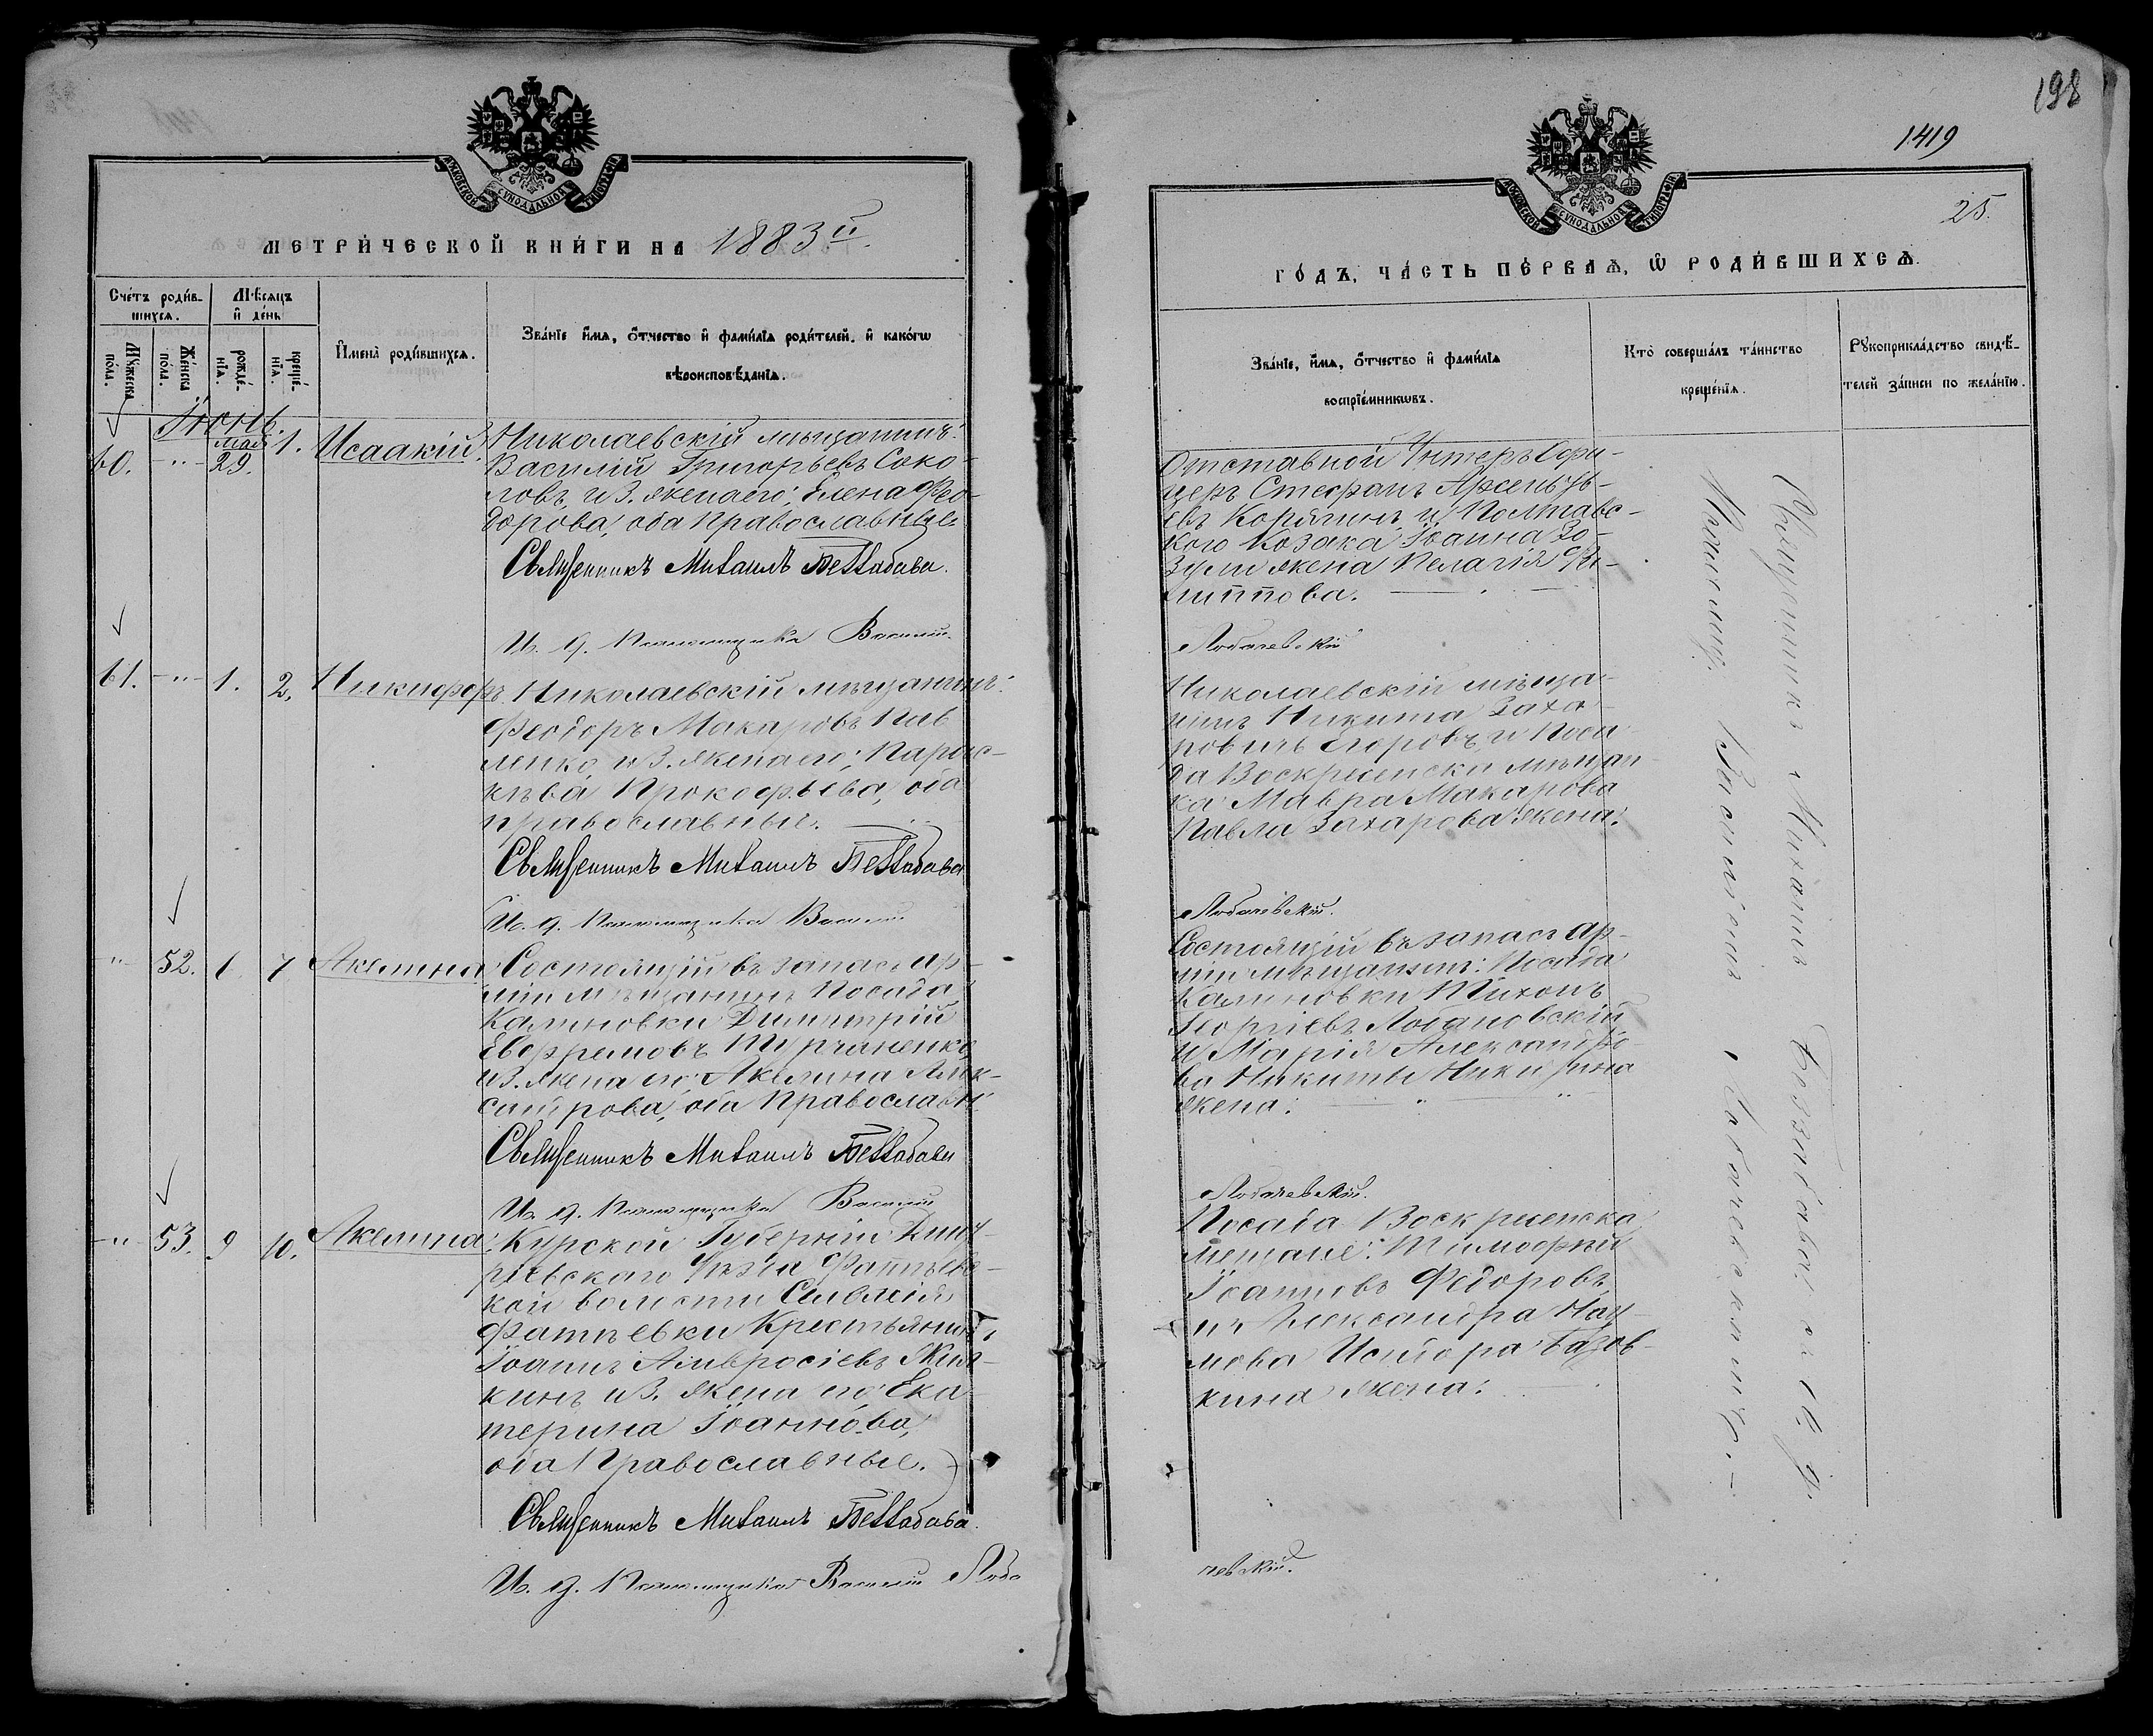 МОСКОВСКОЙ СУНОДАЛЬНОЙ ТИПОГРАФІИ
МЕТРИ́ЧЕСКОЙ КНИ́ГИ НА 1883й.
Сче́тъ роди́в-
шихсѧ.
Мѣ́сѧцъ
и҆ де́нь
Мꙋ́жеска
по́ла.
Же́нска
по́ла.
рожде́-
нїѧ.
креще́-
нїѧ.
И҆мена̀ роди́вшихсѧ.
Зва́нїе и҆́мѧ, ѻ҆́тчество и҆ фами́лїѧ роди́телей, и҆ како́гѡ
вѣроисповѣ́данїѧ.
Іюнь.
60. -"- Мая 29. 1. Исаакій. Николаевскій мѣщанинъ:
Василій Григорьевъ Соко-
ловъ, и З. жена его: Елена Фео-
дорова, оба православные
Священникъ Михаилъ Беззабава.
И. д. Псаломщика Василій
61. -"- 1. 2. Никифоръ. Николаевскій мѣщанинъ:
Феодоръ Макаровъ Пав
ленко, и З. жена его; Парас-
кѣва Прокофьева, оба
православные.
Священникъ Михаилъ Беззабава
И. д. Псаломщика Василій
-"- 52. 6. 7 Акелина: Состоящій въ запасѣ ар-
міи мѣщанинъ Посада
Калиновки Димитрій
Евфремовъ
и З. жена его: Акелина Алек-
сандрова, оба Православн.
Священникъ Михаилъ Беззабава
И. д. Псаломщика Василій
-"- 53. 9 10. Акелина: Курской Губерніи Дмит-
ріевскаго Уѣзда Фатѣевс-
кой волости Селенія
Фатѣевки Крестьянинъ
Іоаннъ Амвросіевъ
кинъ и З. жена его Ека
терина Іоаннова,
оба Православные.
Священникъ Михаилъ Беззабава.
И. д. Псаломщика Василій Лоба
198
1419
МОСКОВСКОЙ СУНОДАЛЬНОЙ ТИПОГРАФІИ
25.
ГО́ДЪ, ЧА́СТЬ ПЕ́РВАѦ, Ѽ РОДИ́ВШИХСѦ.
Зва́нїе, и҆́мѧ, ѻ҆́тчество и҆ фами́лїѧ
воспрїе́мникѡвъ.
Кто̀ соверша́лъ та́инство
креще́нїѧ.
Рꙋкоприкла́дство свидѣ́-
телей за́писи по жела́нїю.
Отставной Унтеръ Офи-
церъ Стефанъ Арсеньъ-
евъ Корягинъ, и Полтавс-
кого Козака Іоанна Зо-
зули жена Пелагія Фи-
липпова.
Лобачевскій
Николаевскій мѣща-
нинъ Никита Заха-
ровичъ Егоровъ, и Поса-
да Воскресенска мѣщан-
ка: Мавра Макарова
Павла Захарова жена:
Лобачевскій.
Состоящій въ запасѣ ар-
міи мѣщанинъ: Посада
Калиновки Тихонъ
Георгіевъ
и Марія Александро-
ва Никиты Никитина
жена:
Лобачевскій.
Посада Воскресенска
мещане: Тимофѣй
Іоанновъ Федоровъ,
и Александра Нау-
мова Исидора
кина жена:
чевскій.
Священникъ Михаилъ Беззабава: съ И. д.
Псаломщ. Василіемъ Лобачевскимъ.-